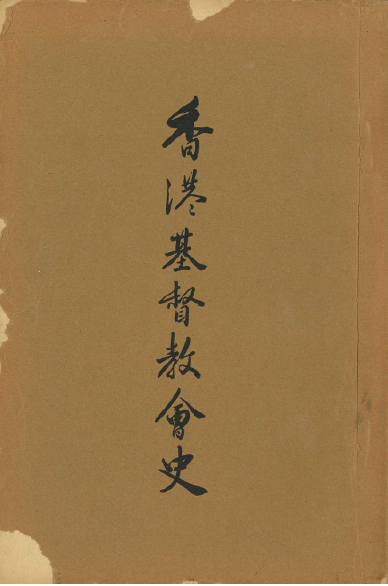 香港基督教會史